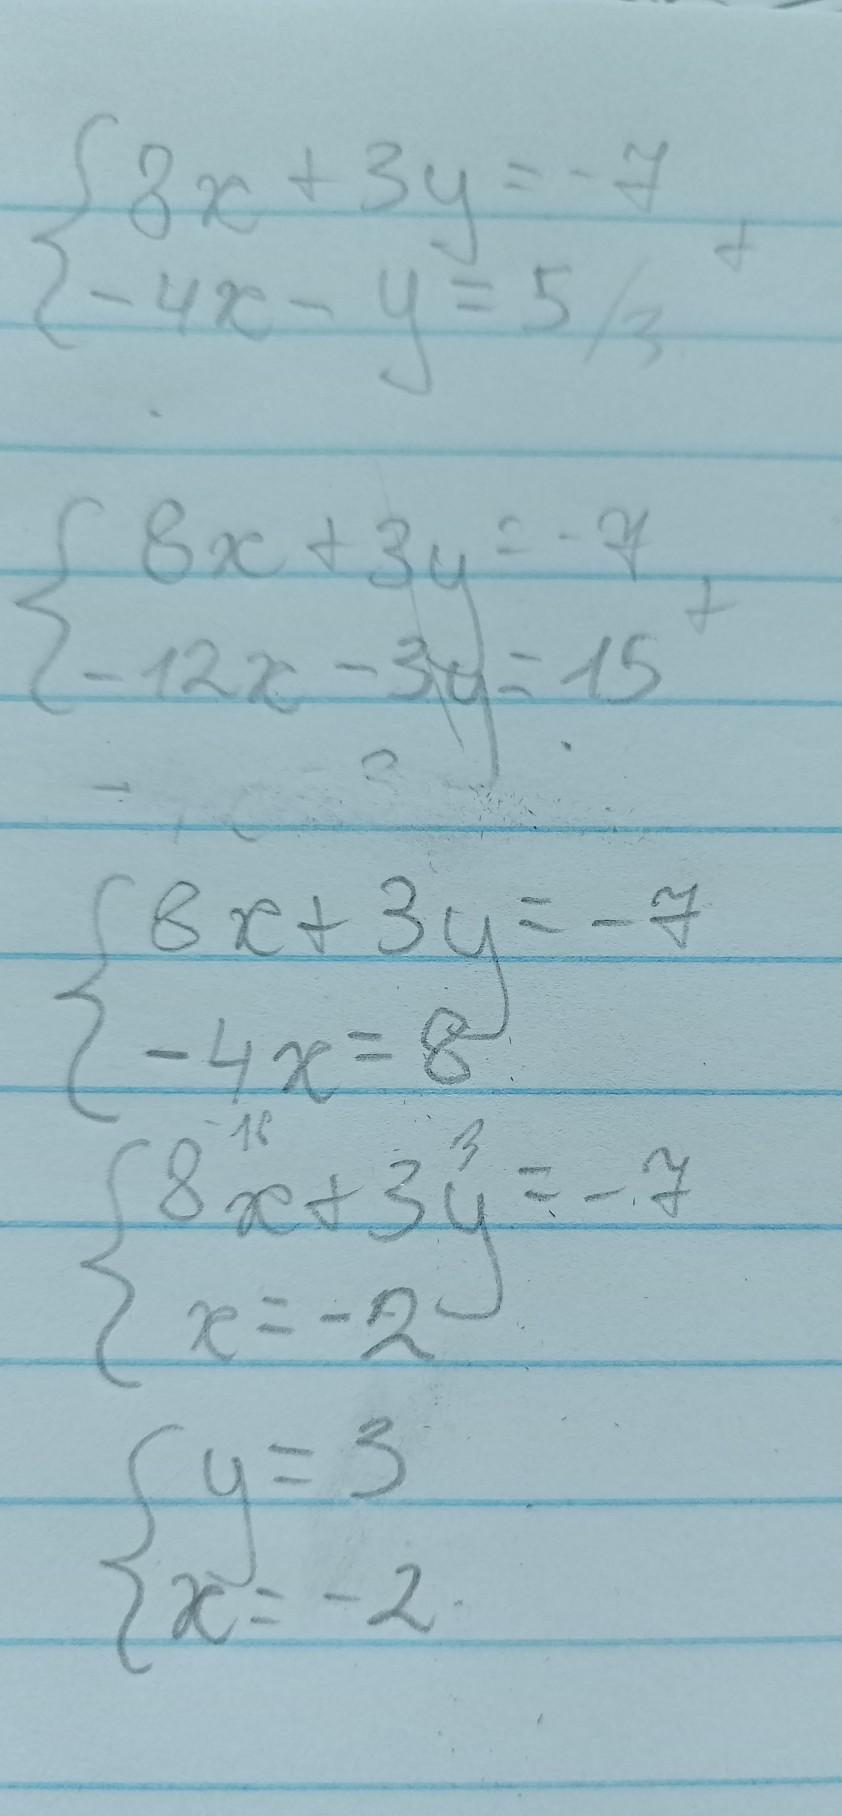 8x + 3y = -7
-4x - y = 5 /3 +
8x + 3y = -7
-12x - 3y = 15 +
8x + 3y = -7
-4x = 8
-16 3
8x + 3y = -7
x = -2
y = 3
x = -2